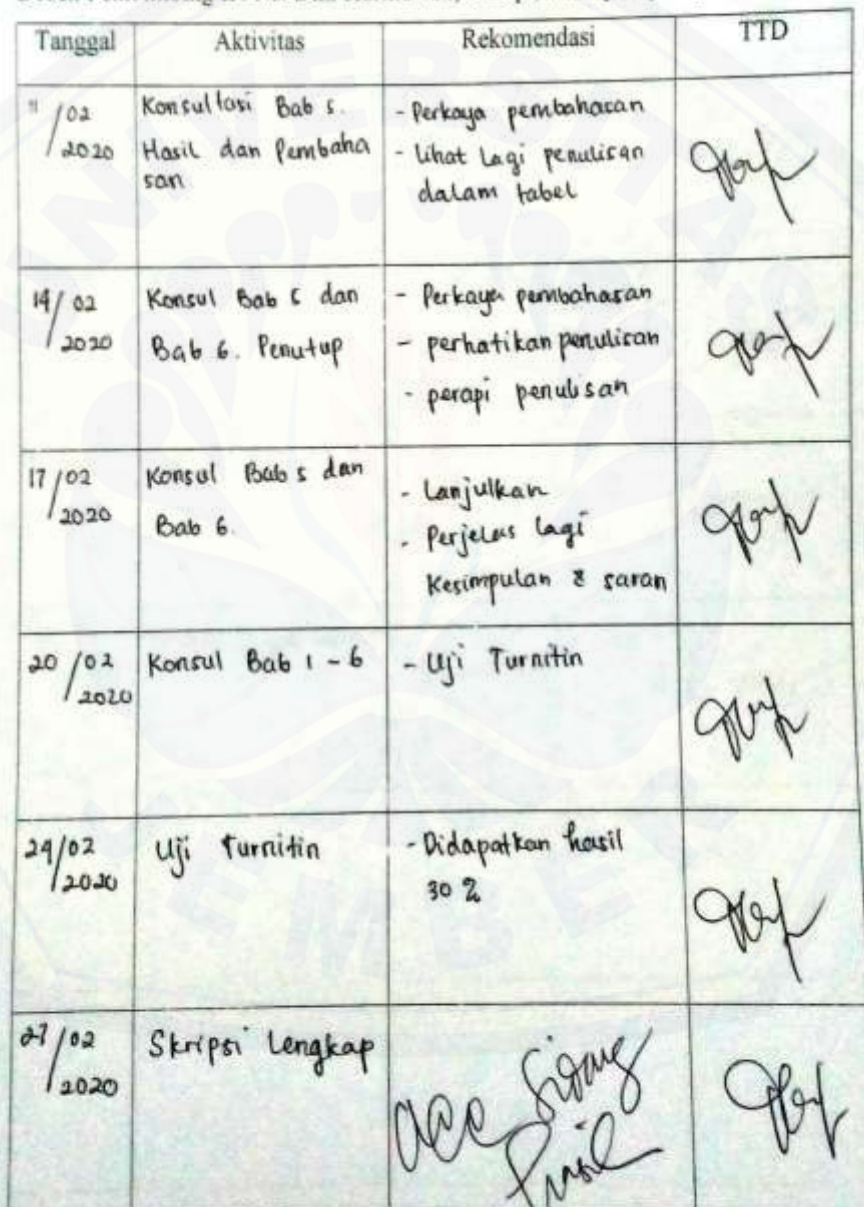 Tanggal Aktivitas Rekomendasi TTD
11/02 2020
Konsultasi Bab 5.
Hasil dan Pembaha
san
- Perkaya pembahasan
- Lihat Lagi penulisan
dalam tabel
14/02 2020
Konsul Bab 5 dan
Bab 6. Penutup
- Perkaya pembahasan
- perhatikan penulisan
- perapi penulisan
17/02 2020
Konsul Bab 5 dan
Bab 6.
- Lanjutkan
- Perjelas lagi
Kesimpulan & saran
20/02 2020
Konsul Bab 1 - 6
- Uji Turnitin
24/02 2020
Uji Turnitin
- Didapatkan hasil
30 %
27/02 2020
Skripsi Lengkap
acc Sidang
Hasil